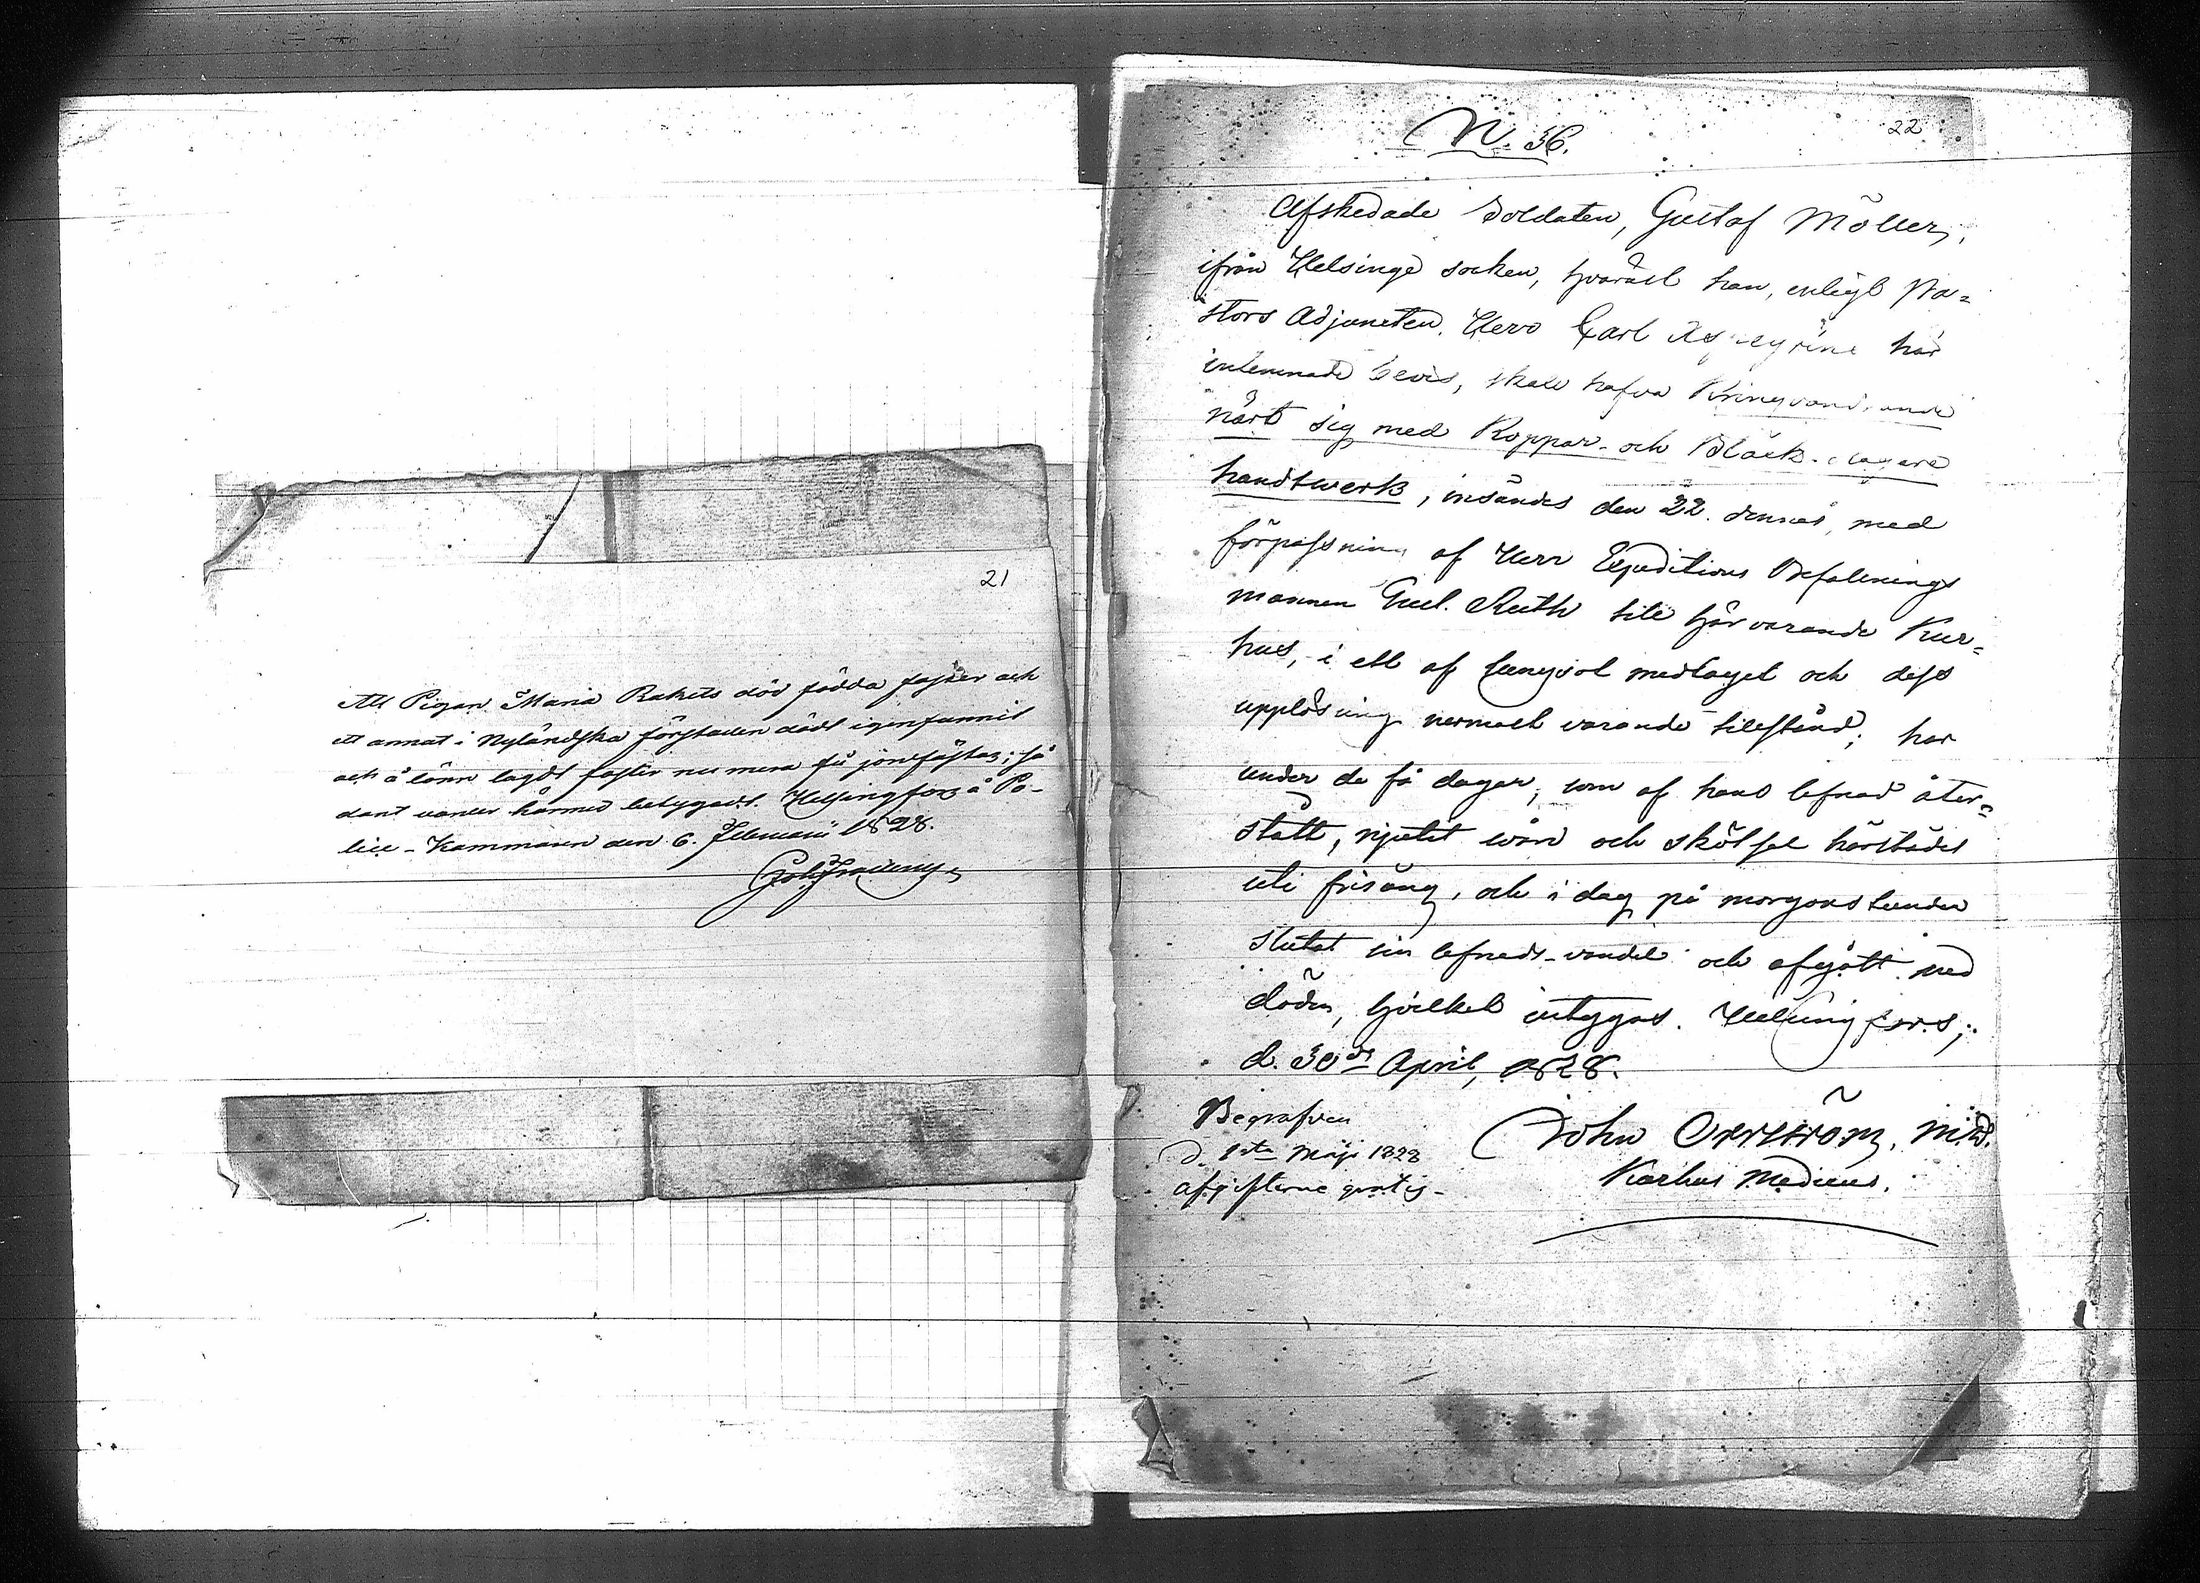 21
Att Pigan Maria Rakets död födda foster och
ett annat i Nyländska förstaden dödt igenfunnit
och å lönn lagdt foster nu mera få jordfästas; så
dant varder härmed betygadt. Helsingfors å Po-
lice-Kammaren den 6. Februarii 1828.
22
N. 36.
Afskedade Soldaten, Gustaf Möller,
ifrån Helsinge socken, hvaräst han, enligt Pa=
stors Adjuncten, Herr Carl här
inlemnade bevis, skall hafva Kringvandrande
närt sig med Koppar- och Bläck-slagare
handtwerk, insändes den 22. dennes, med
förpassning af Herr Expeditions Befallnings
mannen Gust. Ruth till härvarande Kur-
hus, i ett af lungsot medtaget och dess
upplösning nermast varande tillstånd; har
under de få dagar, som af hans lefnad åter=
stått, njutit wård och skötsel härstädes
uti frisäng, och i dag på morgonstunden
slutat sin lefnads-vandel och afgått med
döden, hvilket intygas. Helsingfors;
d. 30de April, 1828.
Begrafven
d. 1sta Maji 1828
afgifterne gratis-
John Orrström, M.D.
Kurhus Medicus.